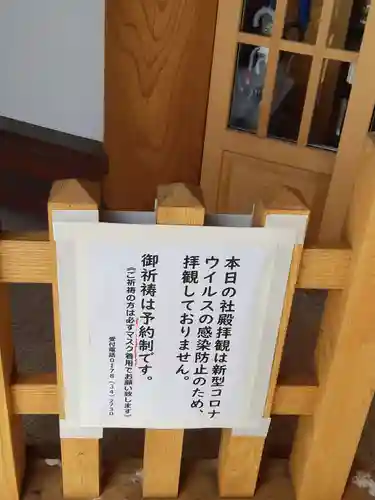 本日の社殿拝観は新型コロナ
ウイルスの感染防止のため、
拝観しておりません。
御祈祷は予約制です。
(ご祈祷の方は必ずマスク着用でお願い致します)
受付電話0178(34)2730